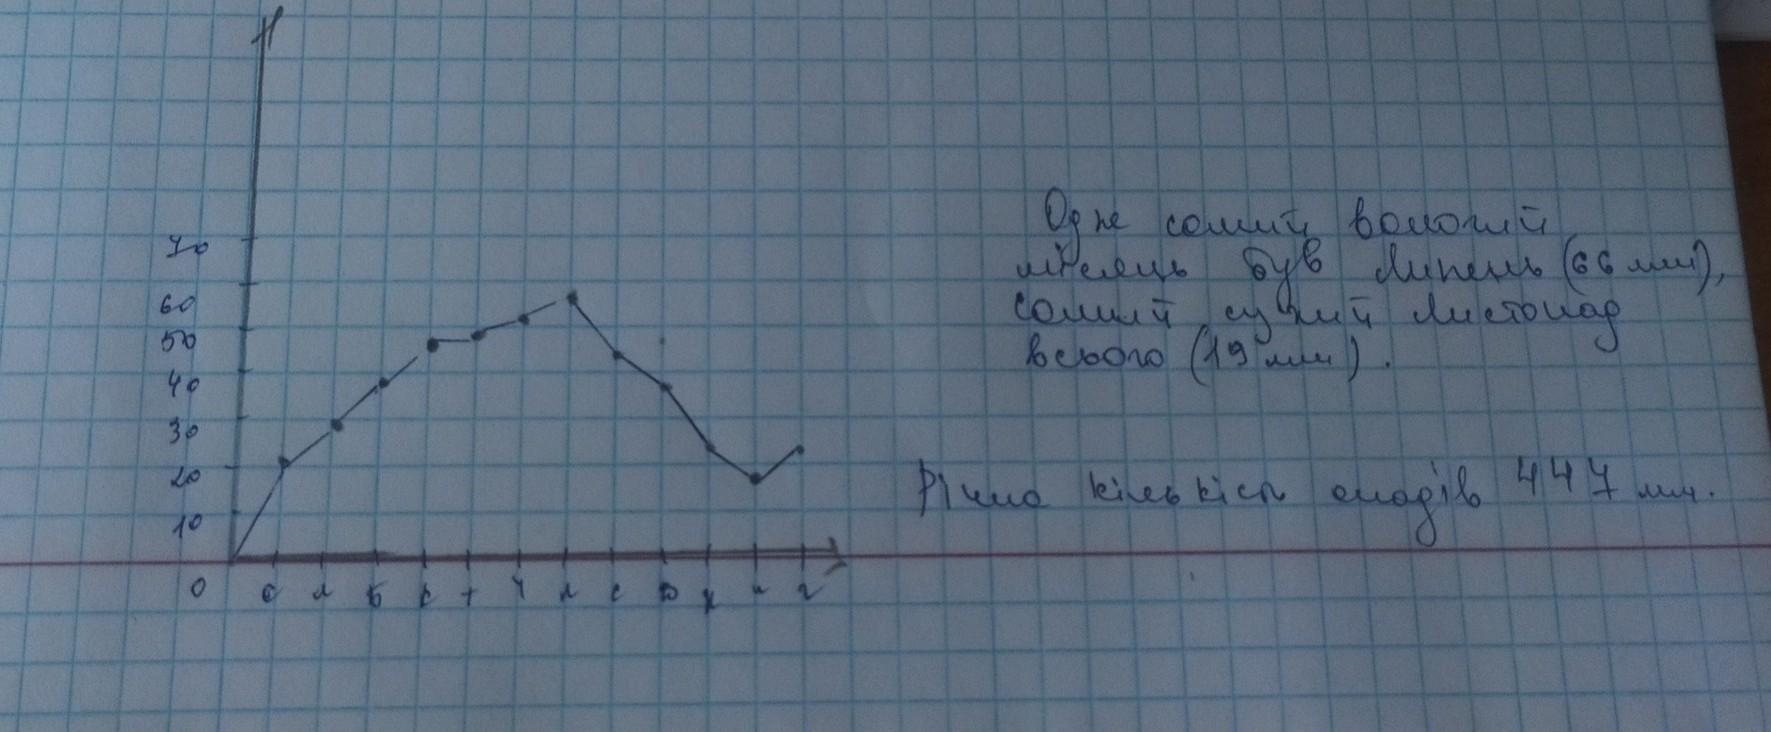 70
60
50
40
30
20
10
0 с л б к т ч л с в ж л г
Одже самий вологий
місяць був Липень (66 мм),
самий сухий листопад
всього (19 мм).
Річна кількість опадів 447 мм.